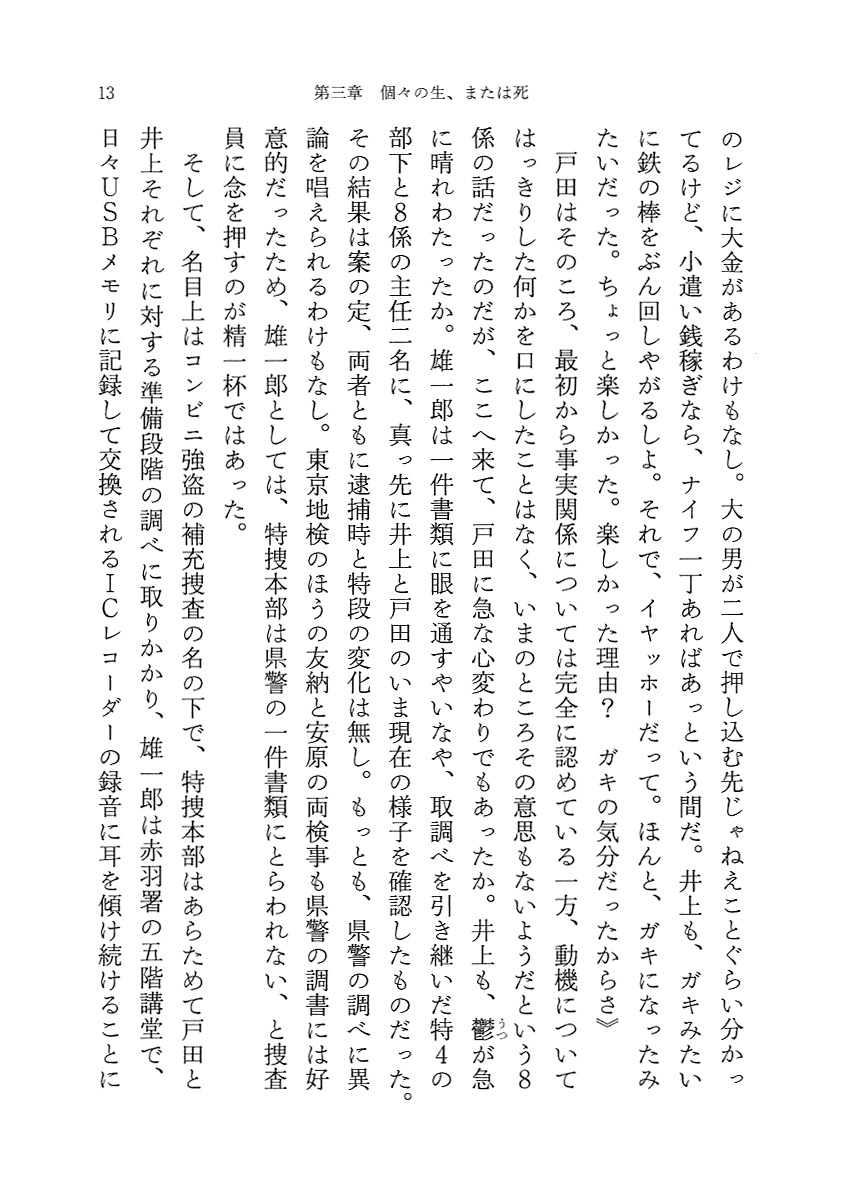 13
第三章　個々の生、または死
のレジに大金があるわけもなし。大の男が二人で押し込む先じゃねえことぐらい分かっ
てるけど、小遣い銭稼ぎなら、ナイフ一丁あればあっという間だ。井上も、ガキみたい
に鉄の棒をぶん回しやがるしよ。それで、イヤッホーだって。ほんと、ガキになったみ
たいだった。ちょっと楽しかった。楽しかった理由？　ガキの気分だったからさ》
　戸田はそのころ、最初から事実関係については完全に認めている一方、動機について
はっきりした何かを口にしたことはなく、いまのところその意思もないようだという8
係の話だったのだが、ここへ来て、戸田に急な心変わりでもあったか。井上も、鬱うつが急
に晴れわたったか。雄一郎は一件書類に眼を通すやいなや、取調べを引き継いだ特4の
部下と8係の主任二名に、真っ先に井上と戸田のいま現在の様子を確認したものだった。
その結果は案の定、両者ともに逮捕時と特段の変化は無し。もっとも、県警の調べに異
論を唱えられるわけもなし。東京地検のほうの友納と安原の両検事も県警の調書には好
意的だったため、雄一郎としては、特捜本部は県警の一件書類にとらわれない、と捜査
員に念を押すのが精一杯ではあった。
　そして、名目上はコンビニ強盗の補充捜査の名の下で、特捜本部はあらためて戸田と
井上それぞれに対する準備段階の調べに取りかかり、雄一郎は赤羽署の五階講堂で、
日々USBメモリに記録して交換されるICレコーダーの録音に耳を傾け続けることに